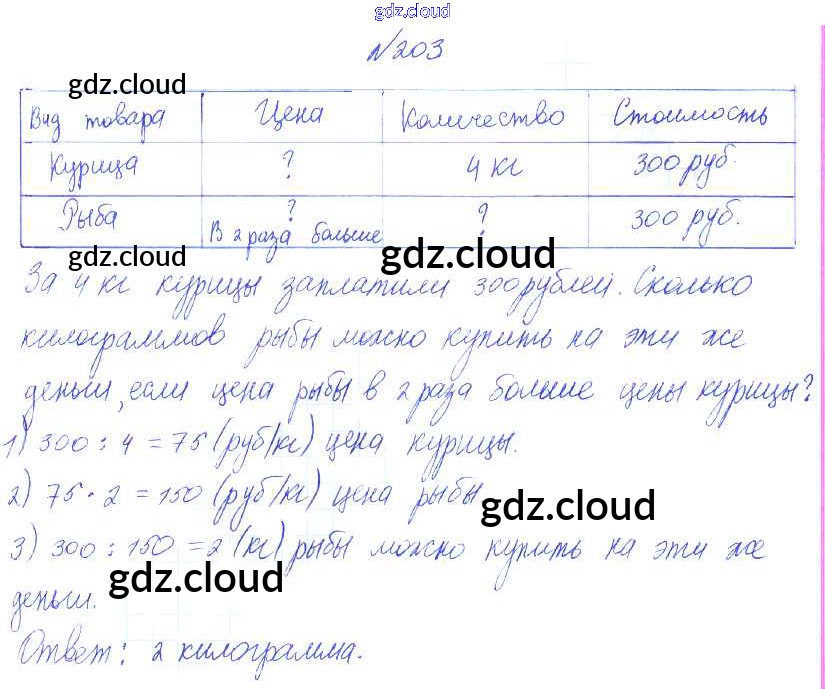 gdz.cloud
№203
gdz.cloud
Вид товара Цена Количество Стоимость
Курица ? 4 кг 300 руб.
Рыба ? В 2 раза больше ? 300 руб.
gdz.cloud gdz.cloud
За 4 кг курицы заплатили 300 рублей. Сколько
килограммов рыбы можно купить на эти же
деньги, если цена рыбы в 2 раза больше цены курицы?
1) 300 : 4 = 75 (руб/кг) цена курицы.
2) 75 · 2 = 150 (руб/кг) цена рыбы
gdz.cloud
3) 300 : 150 = 2 (кг) рыбы можно купить на эти же
gdz.cloud
деньги.
Ответ: 2 килограмма.